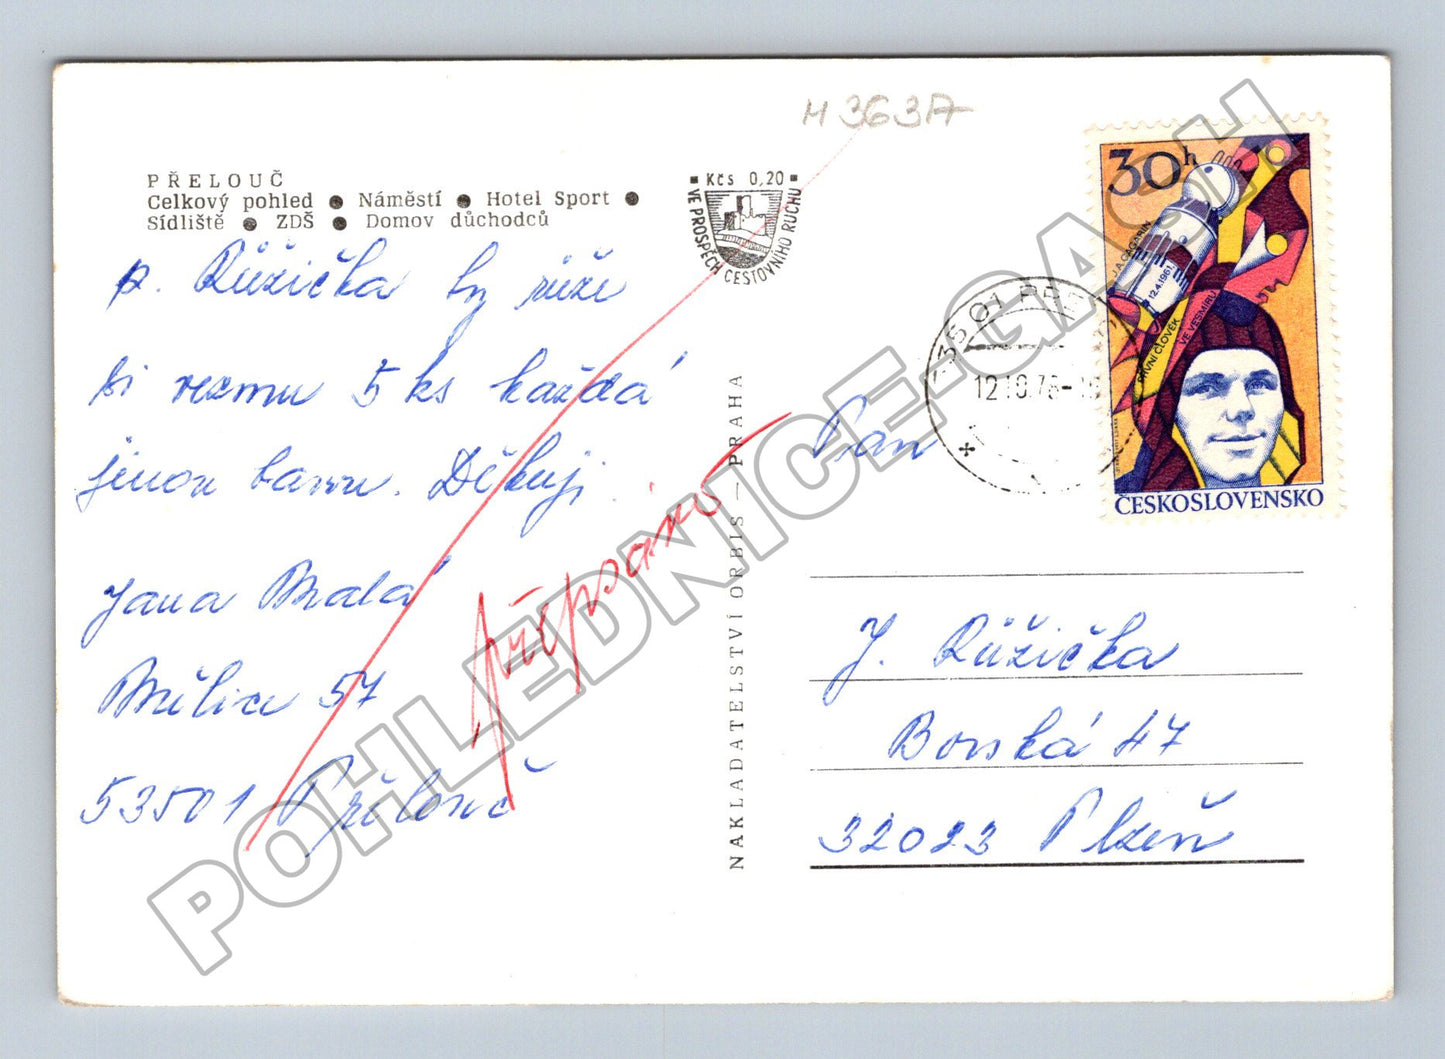 H 363A
PŘELOUČ
Celkový pohled ● Náměstí ● Hotel Sport ●
Sídliště ● ZDŠ ● Domov důchodců
Kčs 0,20
VE PROSPĚCH CESTOVNÍHO RUCHU
p. Růžička by růže
si vezmu 5 ks každá
jinou barvu. Děkuji.
Jana Malá
Mělice 57
53501 Přelouč
přepsáno
NAKLADATELSTVÍ ORBIS — PRAHA
30h
J.A.GAGARIN
12.4.1961
PRVNÍ ČLOVĚK
VE VESMÍRU
ČESKOSLOVENSKO
35 01 PŘE
12.10.78-16
Pan
J. Růžička
Borská 47
32023 Plzeň
POHLEDNICE-GASH